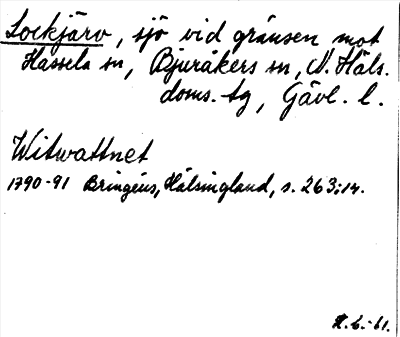 Lockjärv, sjö vid gränsen mot
Hassela sn, Bjuråkers sn, N. Häls.
doms. tg, Gävl. l.
Witwattnet
1790-91 Bringéus, Hälsingland, s. 263:14.
H.L.-61.